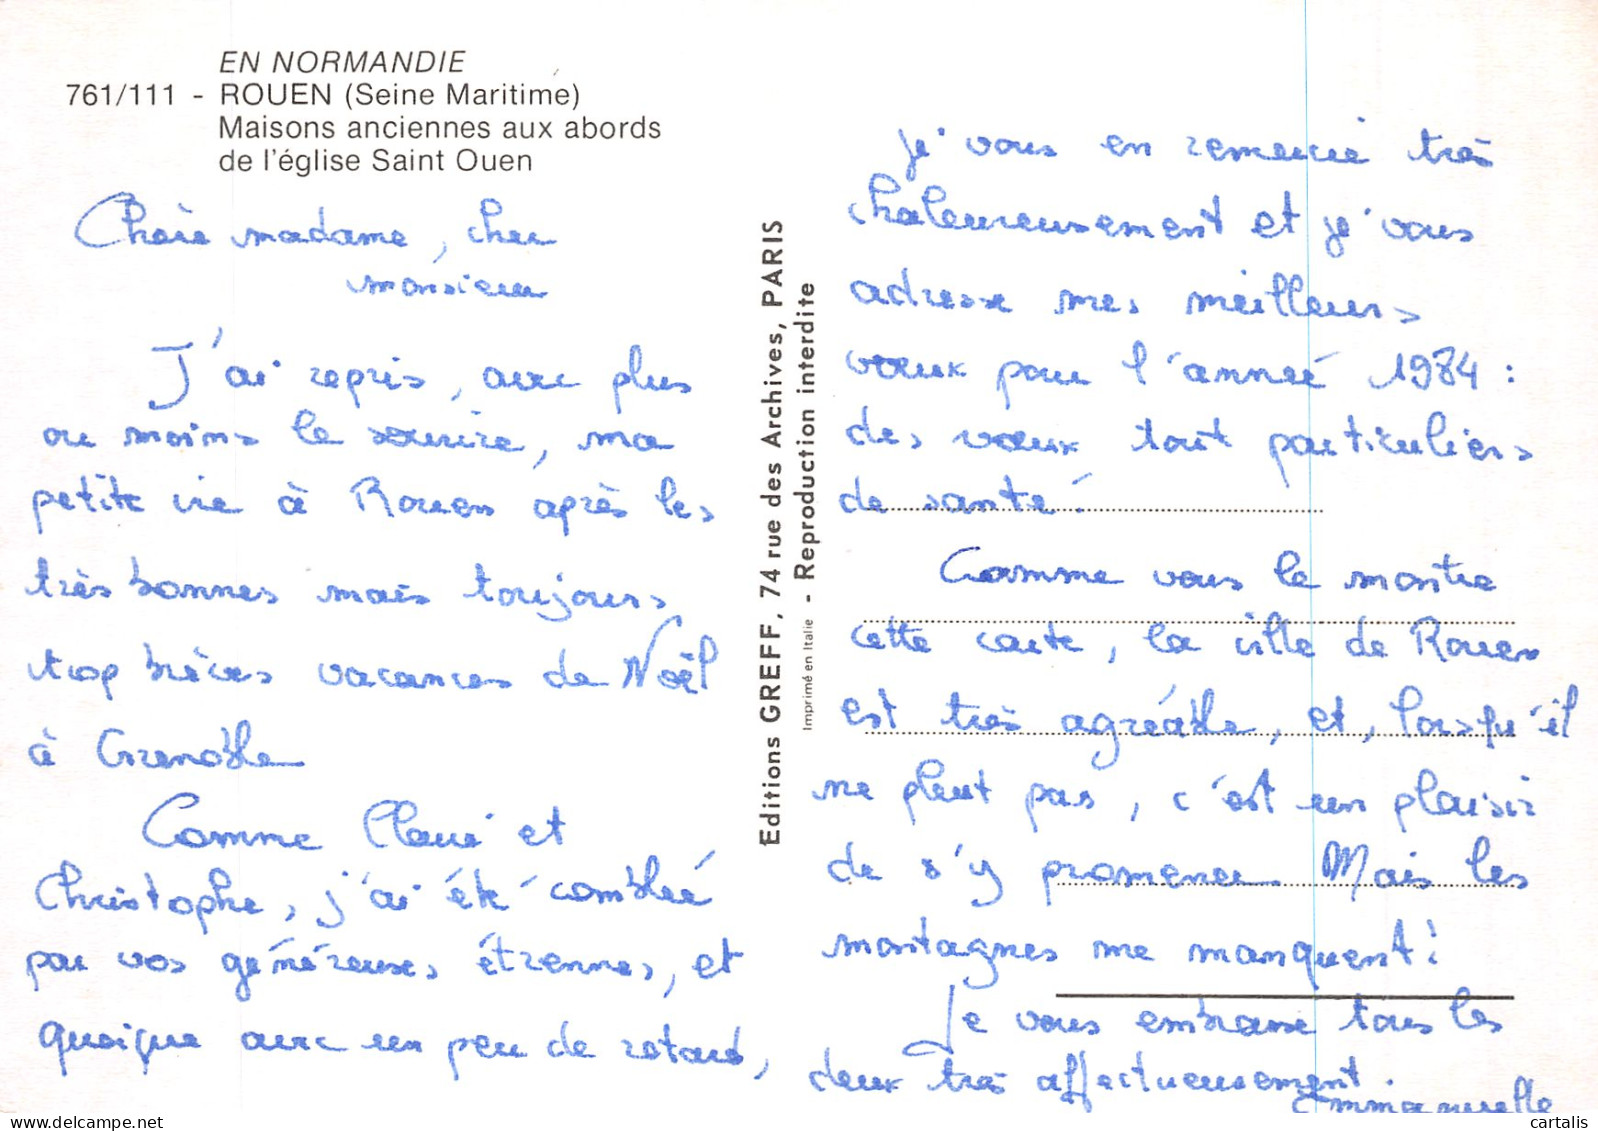 EN NORMANDIE
761/111 - ROUEN (Seine Maritime)
Maisons anciennes aux abords
de l'église Saint Ouen
Chère madame, cher
monsieur
J'ai repris, avec plus
ou moins le sourire, ma
petite vie à Rouen après les
très bonnes mais toujours
trop brèves vacances de Noël
à Grenoble
Comme Claire et
Christophe, j'ai été comblée
par vos généreuses étrennes, et
quoique avec un peu de retard,
Editions GREFF, 74 rue des Archives, PARIS
Imprimé en Italie - Reproduction interdite
je vous en remercie très
chaleureusement et je vous
adresse mes meilleurs
vœux pour l'année 1984 :
des vœux tout particuliers
de santé!
Comme vous le montre
cette carte, la ville de Rouen
est très agréable, et, lorsqu'il
ne pleut pas, c'est un plaisir
de s'y promener. Mais les
montagnes me manquent!
Je vous embrasse tous les
deux très affectueusement.
Emmanuelle
cartalis